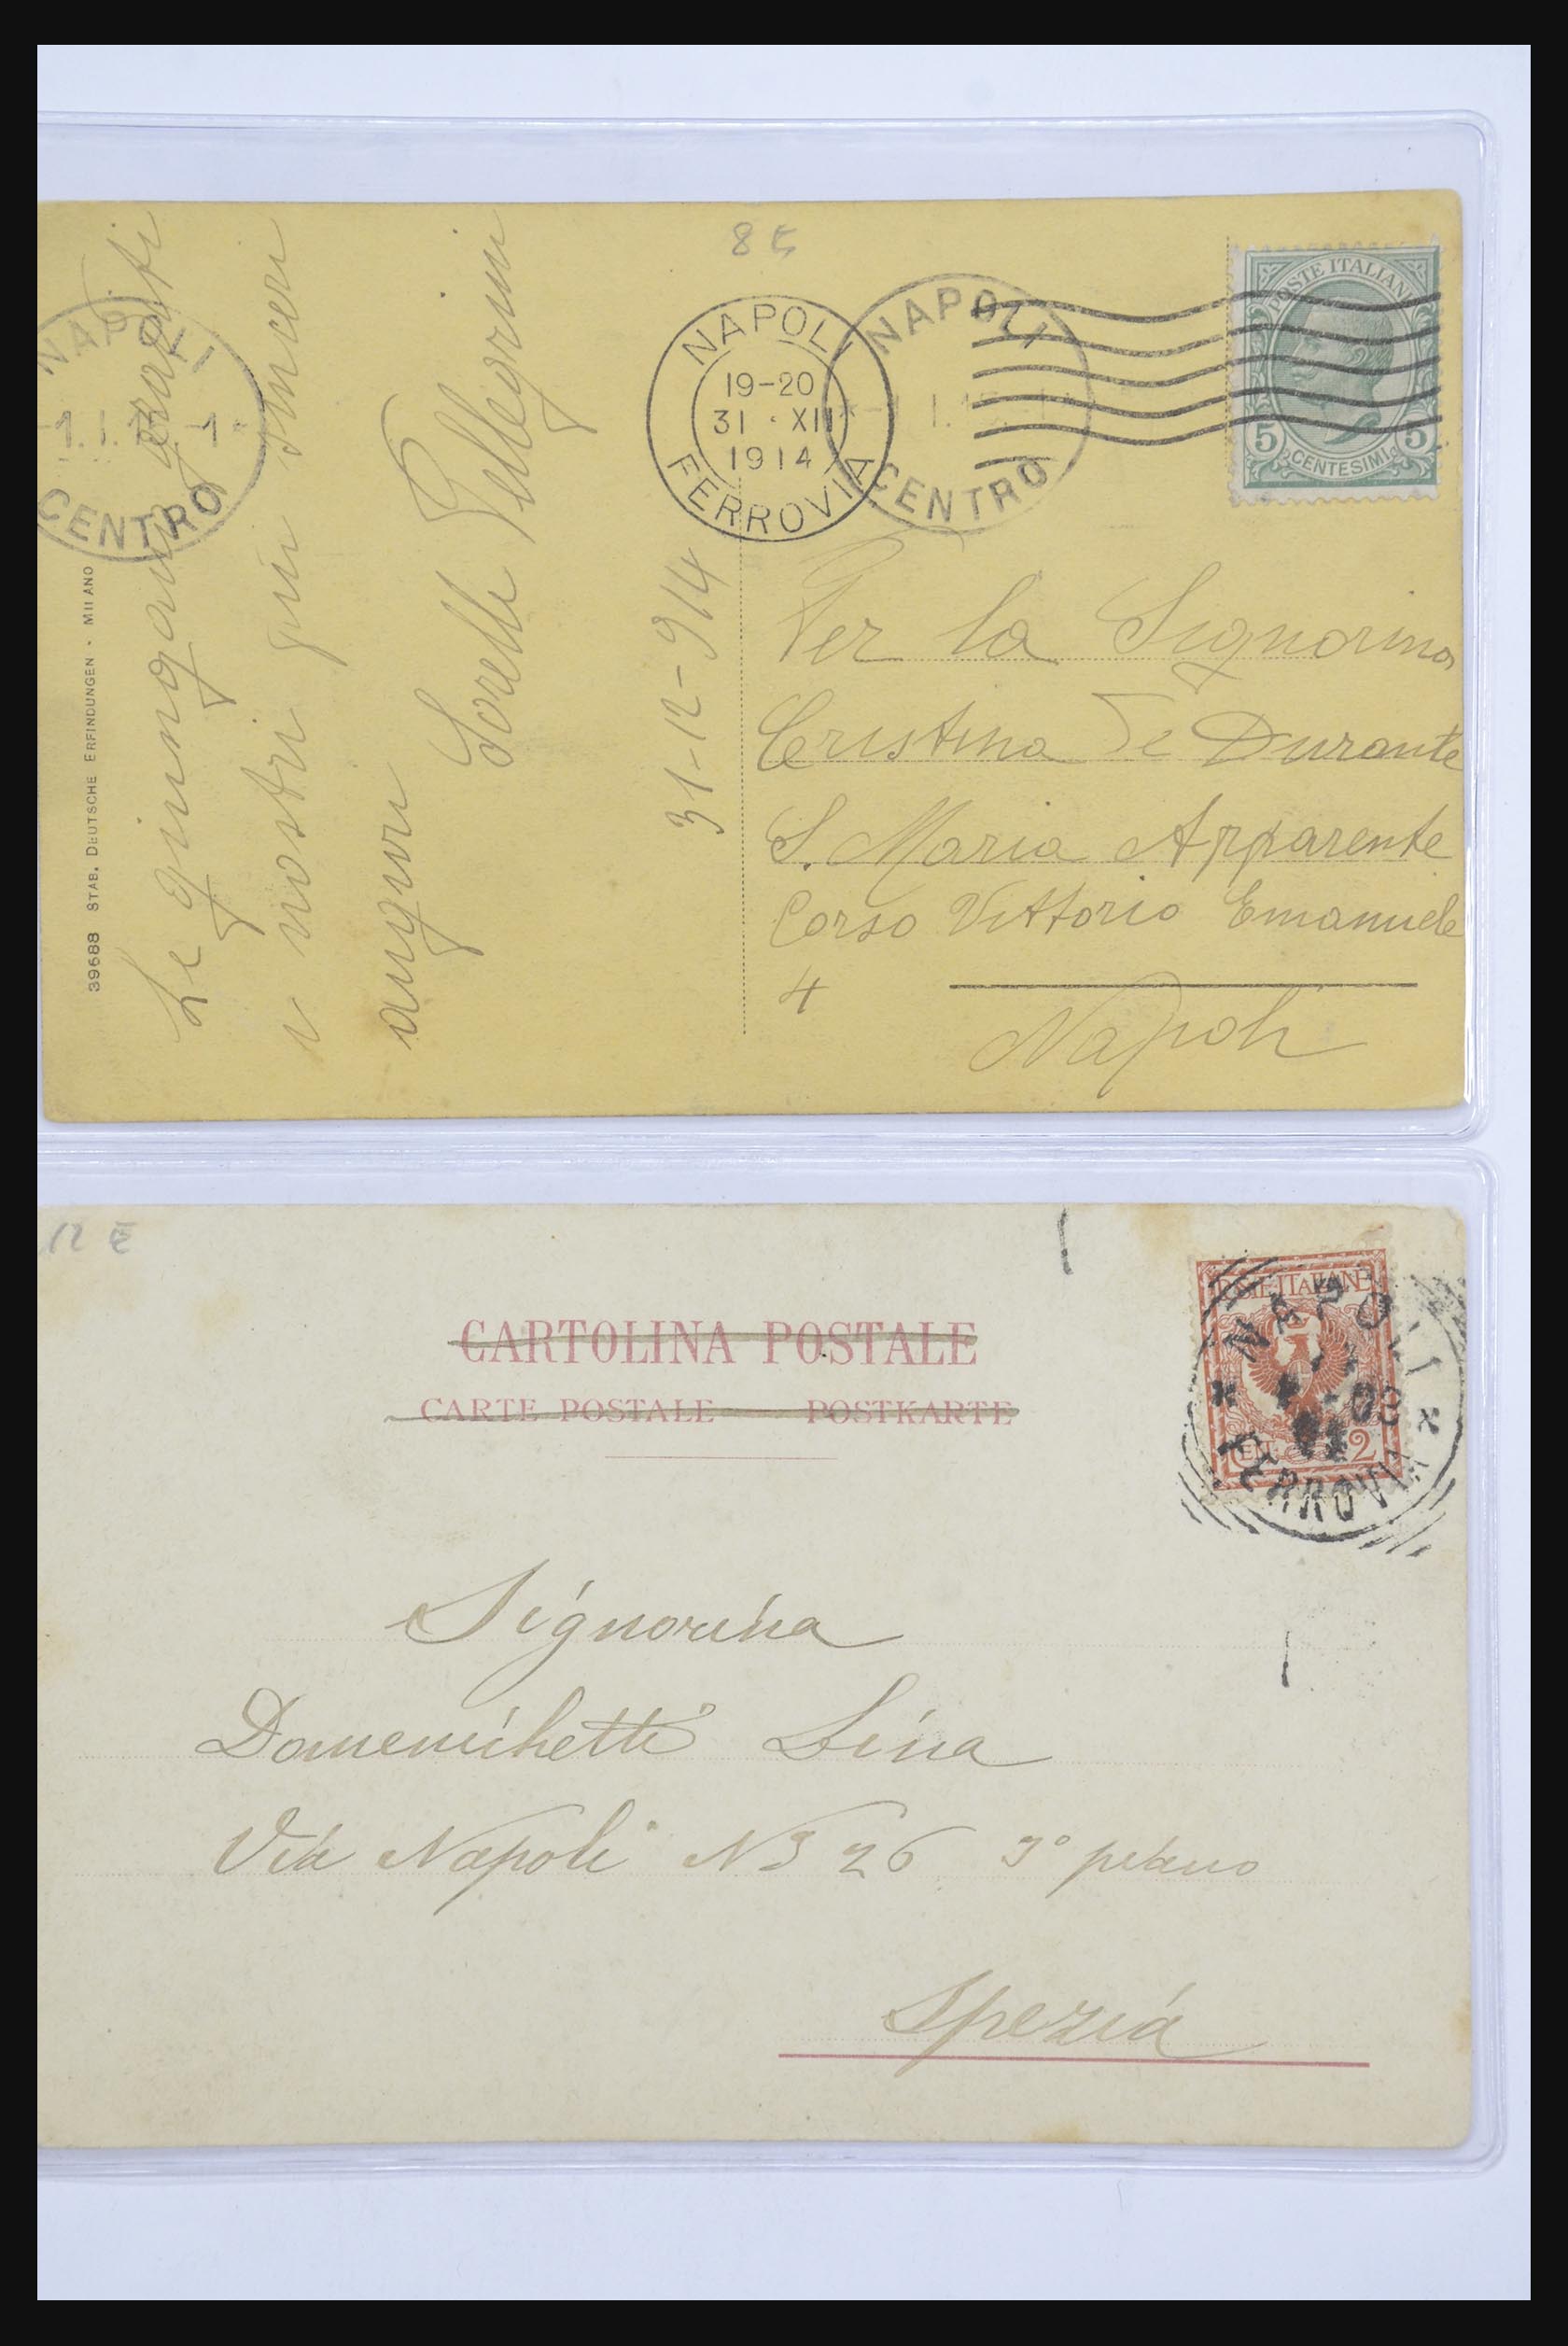 8 €
NAPOLI
19-20
31 · XII
1914
FERROVIA
NAPOLI
CENTRO
POSTE ITALIANE
5 CENTESIMI 5
NAPOLI
-1.I. -1*
CENTRO
39688 STAB. DEUTSCHE ERFINDUNGEN - MILANO
Le giungano graditi
i nostri più sinceri
auguri
Sorelle Pellegrini
31-12-914
Per la Signorina
Cristina De Durante
S. Maria Apparente
Corso Vittorio Emanuele
4
Napoli
12 €
CARTOLINA POSTALE
CARTE POSTALE — POSTKARTE
POSTE ITALIANE
CENT. 2
NAPOLI
FERROVIA
Signorina
Domenichetti Lina
Via Napoli N 3 26 3° piano
Spezia